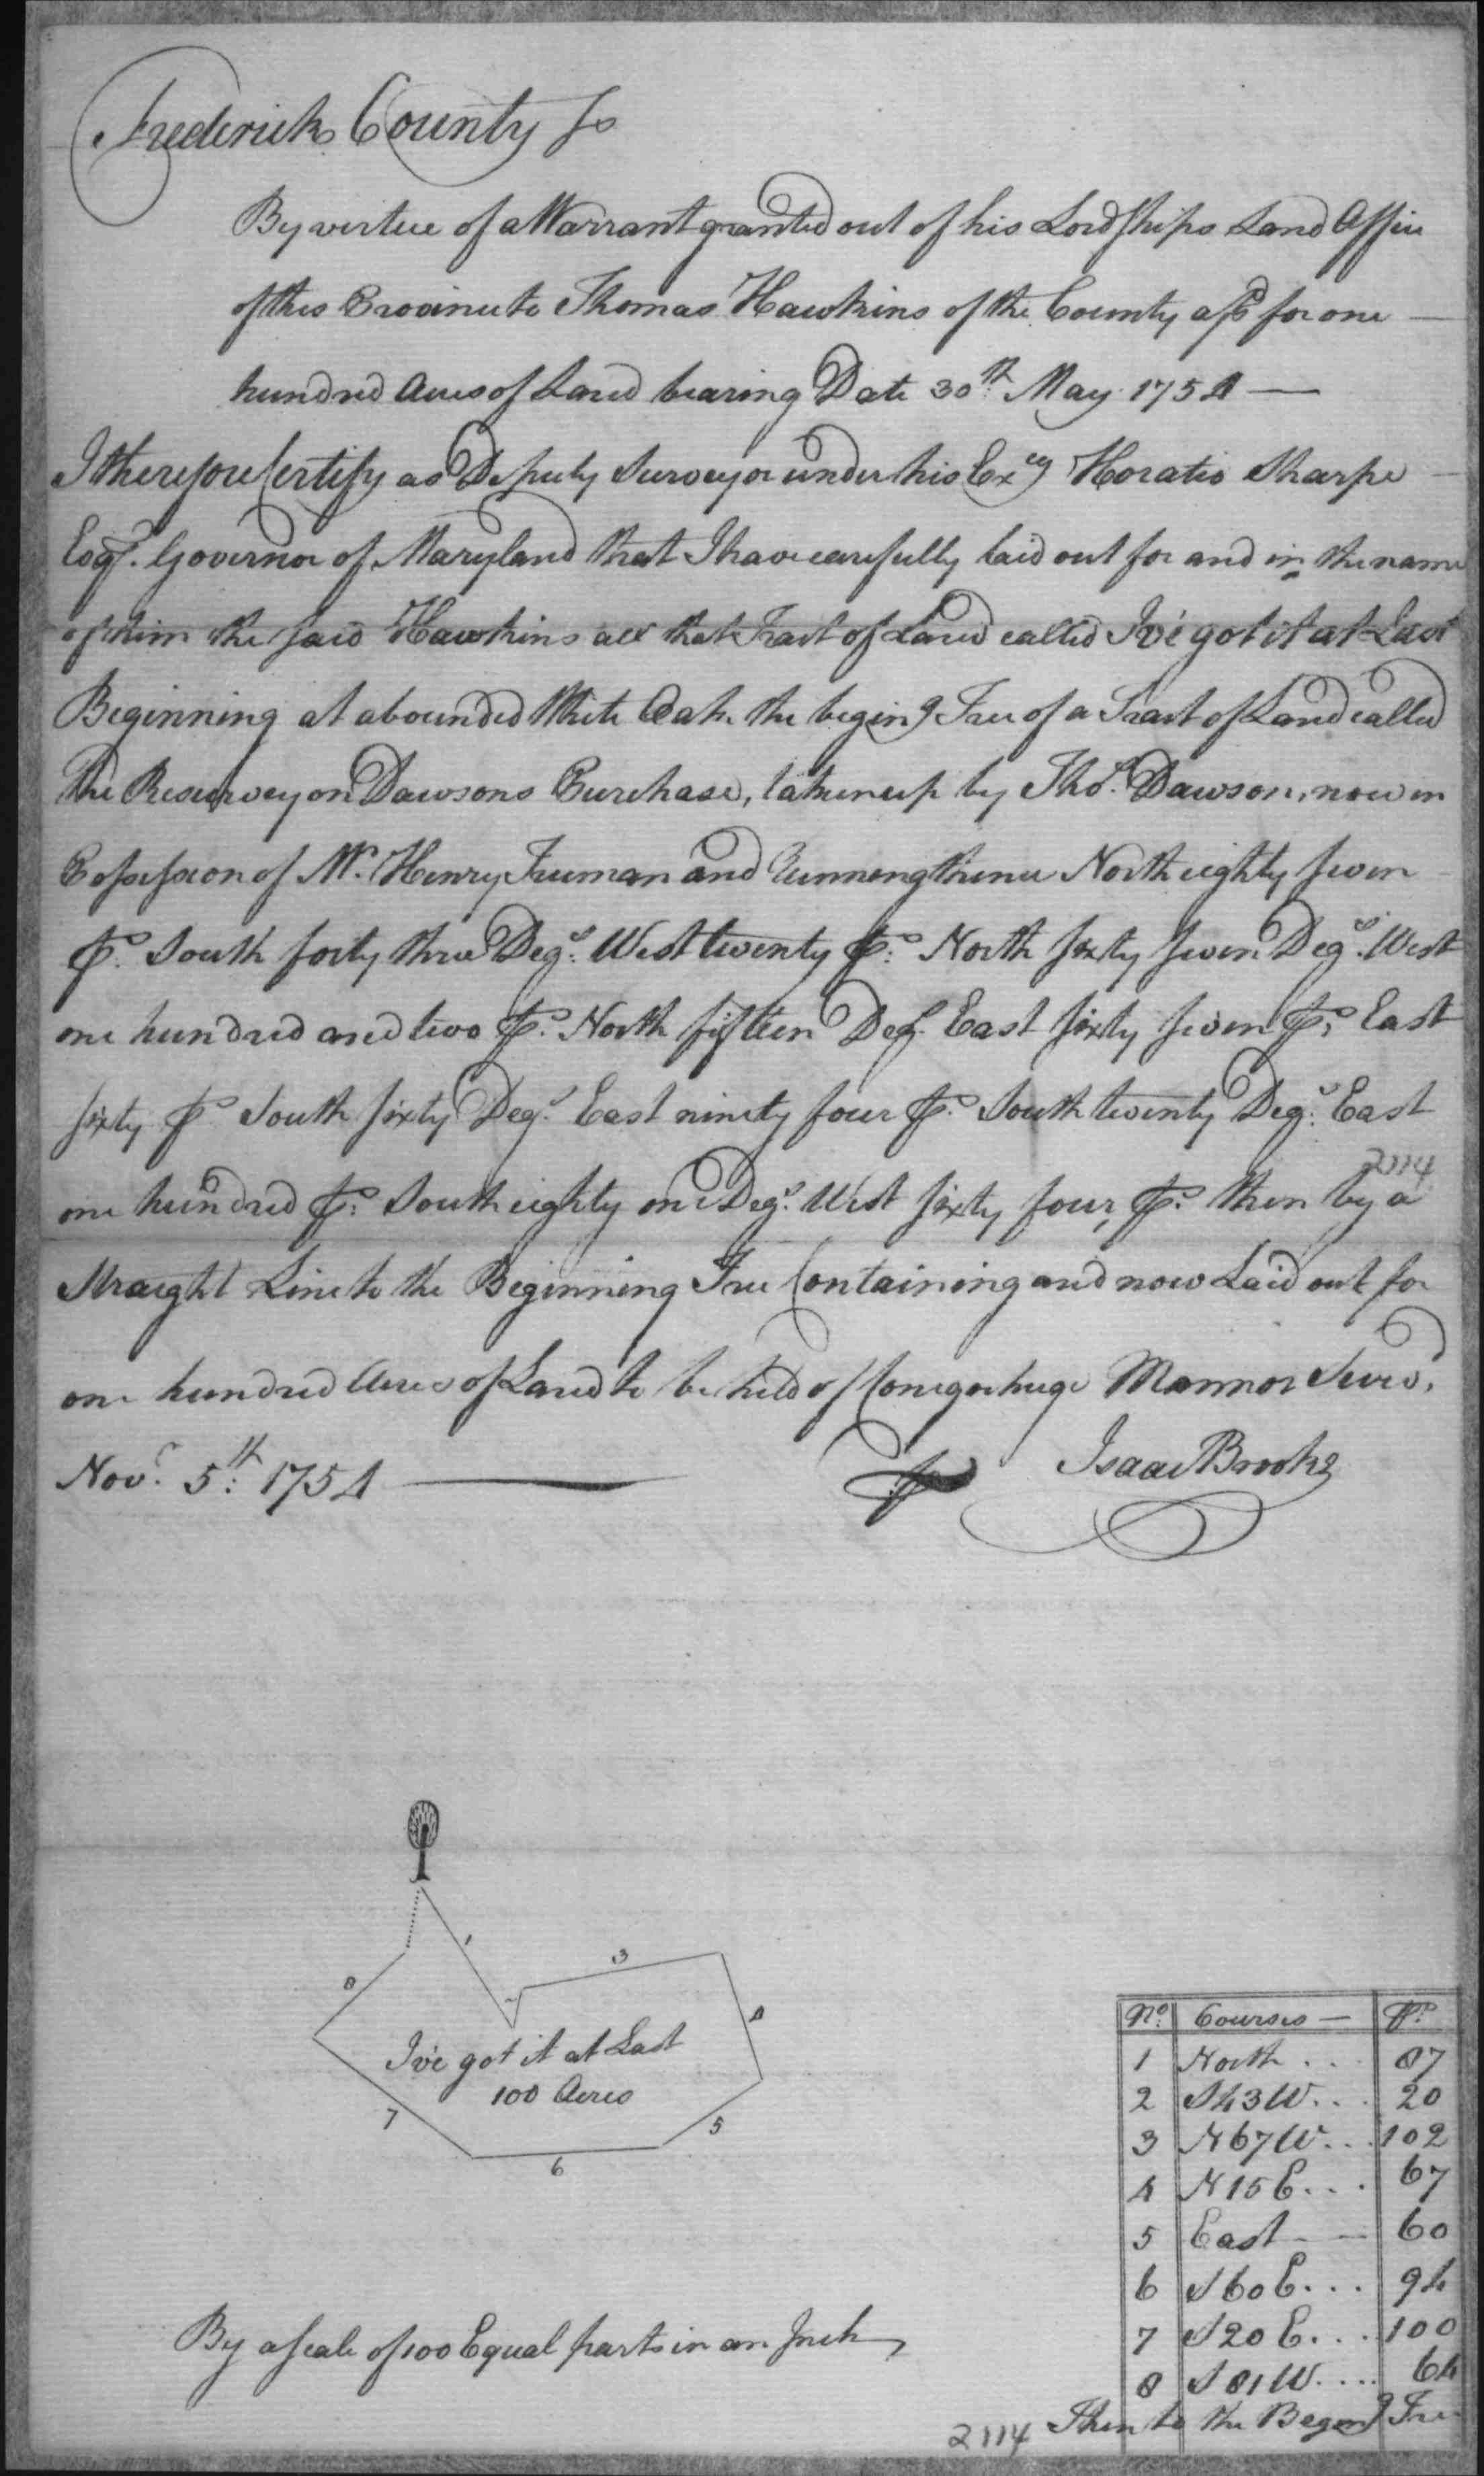 Frederick County Ss
By virtue of a Warrant granted out of his Lordships Land Office
of this Province to Thomas Hawkins of the County afd for one
hundred Acres of Land bearing Date 30th. May 1754
I therefore Certify as Deputy Surveyor under his Excy Horatio Sharpe
Esqr. Governor of Maryland that I have carefully laid out for and in the name
of him the said Hawkins all that Tract of Land called I've got it at Last
Beginning at a bounded White Oak the begin.g Tree of a Tract of Land called
The Resurvey on Dawsons Purchase, taken up by Thos. Dawson, now in
Possession of Mr. Henry Truman and Running thence North eighty seven
ps. South forty three Degs. West twenty ps. North sixty seven Degs. West
one hundred and two ps. North fifteen Degs. East sixty seven ps. East
sixty ps South sixty Degs. East ninety four ps. South twenty Degs. East
2114
one hundred ps. South eighty one Degs. West sixty four, ps. then by a
Straight Line to the Beginning Tree Containing and now Laid out for
one hundred Acres of Land to be held of Conegocheige Mannor Survd.
Novr. 5th: 1754 P Isaac Brooke
1
2
3
4
5
6
7
8
I've got it at Last
100 Acres
By a Scale of 100 Equal parts in an Inch
No. Courses Ps.
1 North ... 87
2 S43W... 20
3 N67W... 102
4 N15E... 67
5 East 60
6 S60E... 94
7 S20E... 100
8 S81W.... 64
Then to the Begin.g Tree
2114